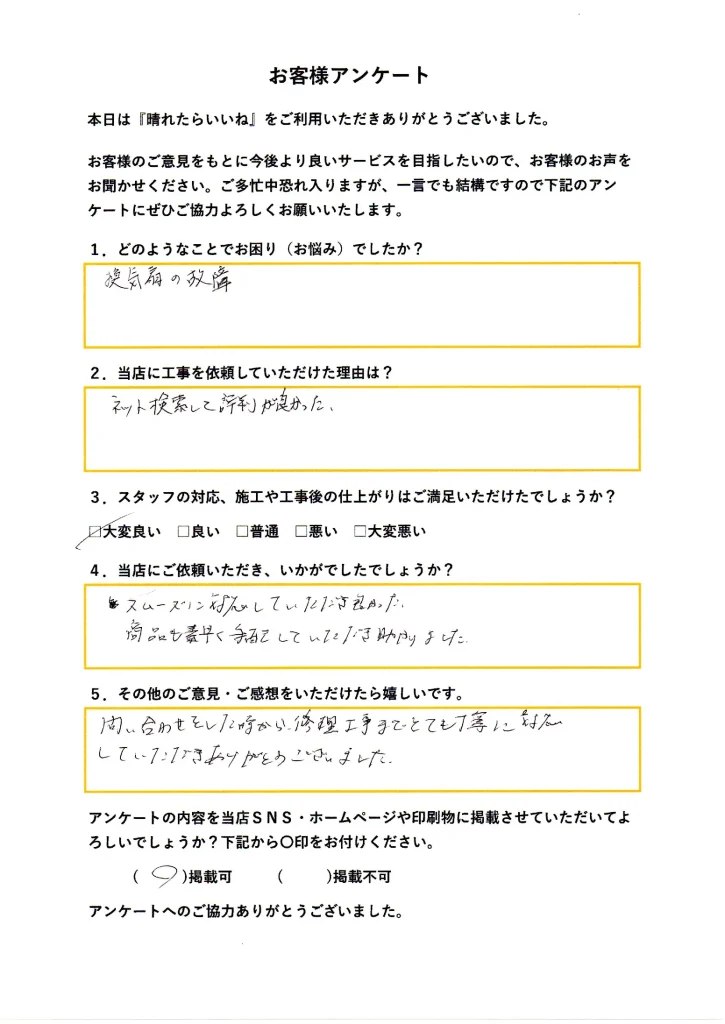 お客様アンケート
本日は『晴れたらいいね』をご利用いただきありがとうございました。
お客様のご意見をもとに今後より良いサービスを目指したいので、お客様のお声を
お聞かせください。ご多忙中恐れ入りますが、一言でも結構ですので下記のアン
ケートにぜひご協力よろしくお願いいたします。
１．どのようなことでお困り（お悩み）でしたか？
換気扇の故障
２．当店に工事を依頼していただけた理由は？
ネット検索して評判が良かった、
３．スタッフの対応、施工や工事後の仕上がりはご満足いただけたでしょうか？
□大変良い □良い □普通 □悪い □大変悪い
４．当店にご依頼いただき、いかがでしたでしょうか？
スムーズに対応していただき良かった。
商品も素早く手配していただき助かりました。
５．その他のご意見・ご感想をいただけたら嬉しいです。
問い合わせをした時から、修理工事までとても丁寧に対応
していただきありがとうございました。
アンケートの内容を当店ＳＮＳ・ホームページや印刷物に掲載させていただいてよ
ろしいでしょうか？下記から〇印をお付けください。
(〇)掲載可 ( )掲載不可
アンケートへのご協力ありがとうございました。